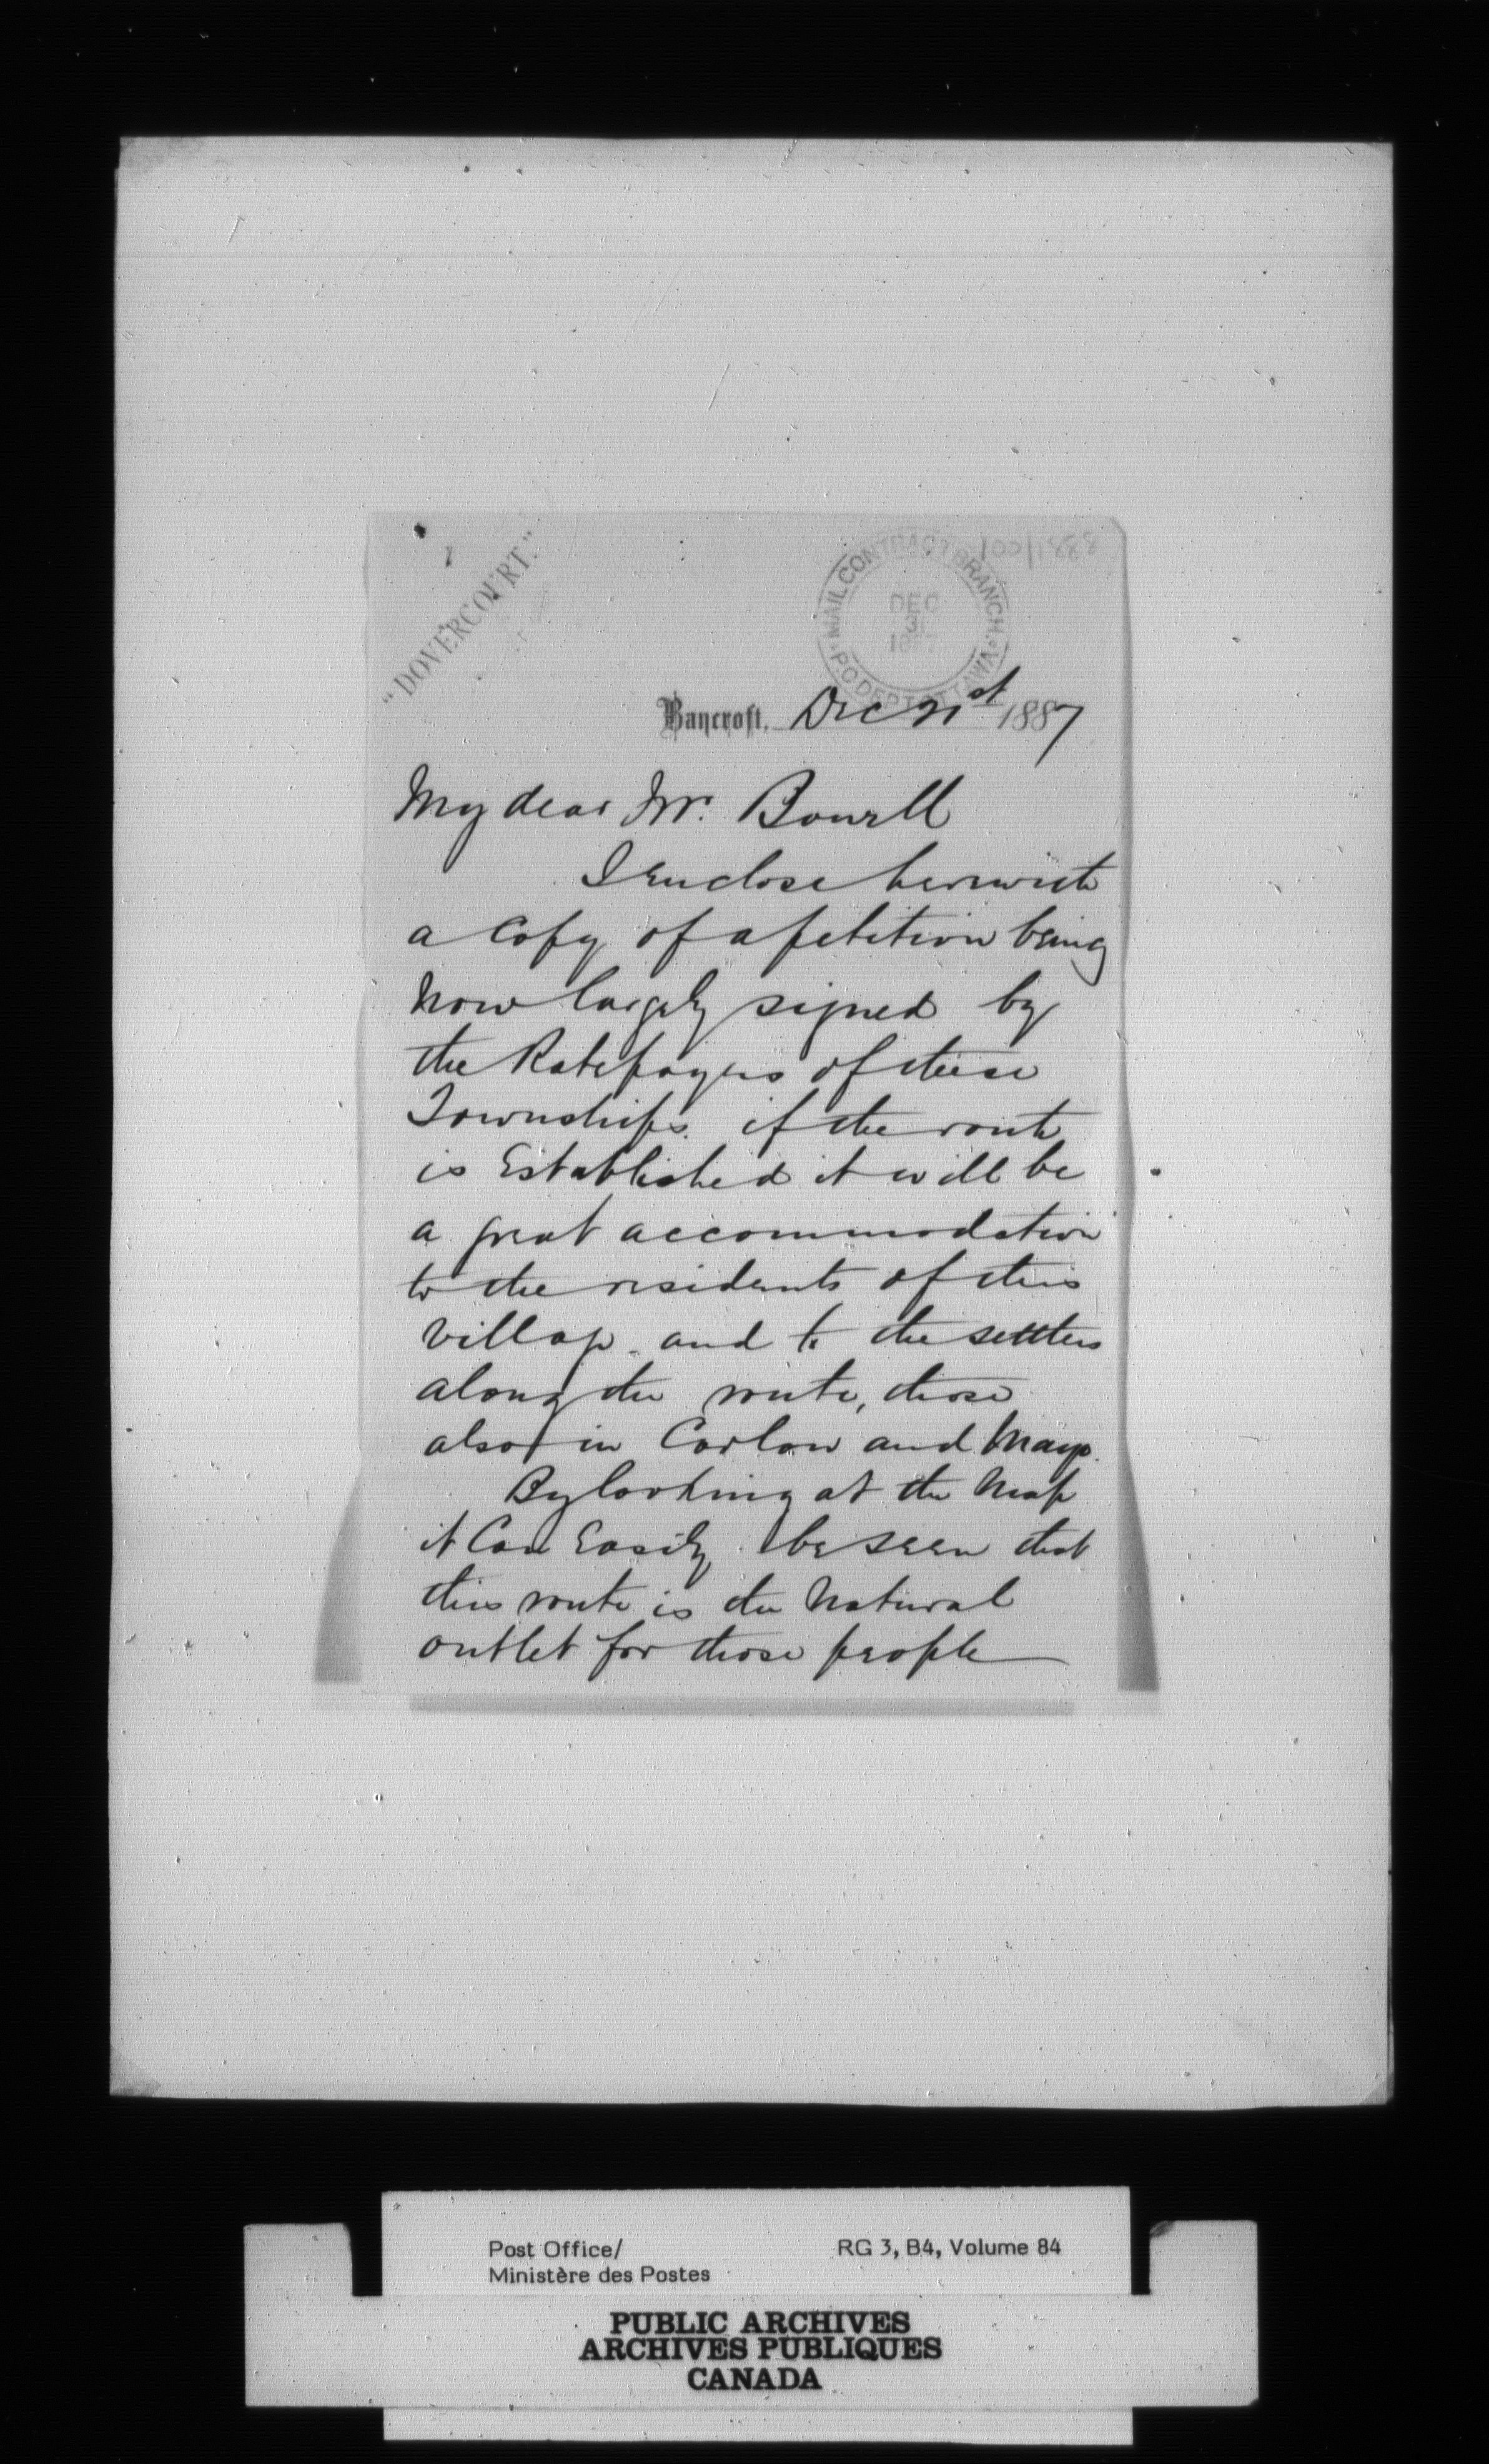 "DOVERCOURT."
MAIL CONTRACT BRANCH.
DEC
31
1887
P.O. DEPT OTTAWA
Bancroft, Dec 21st 1887
My dear Mr. Bowell
I Enclose herewith
a Copy of a petition being
now largely signed by
the Ratepayers of these
Townships. if the route
is Established it will be
a great accommodation
to the residents of this
village and to the settlers
along the route, those
also in Carlow and Mayo.
By looking at the Map
it Can Easily be seen that
this route is the Natural
outlet for those people
Post Office/
Ministère des Postes
RG 3, B4, Volume 84
PUBLIC ARCHIVES
ARCHIVES PUBLIQUES
CANADA